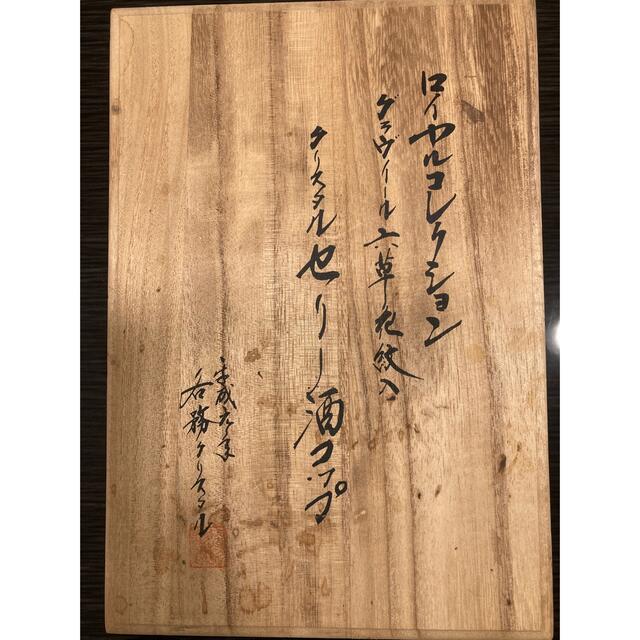 ロイヤルコレクション
グラヴィール六草花紋入
クリスタルセリー酒コップ
平成六年
各務クリスタル